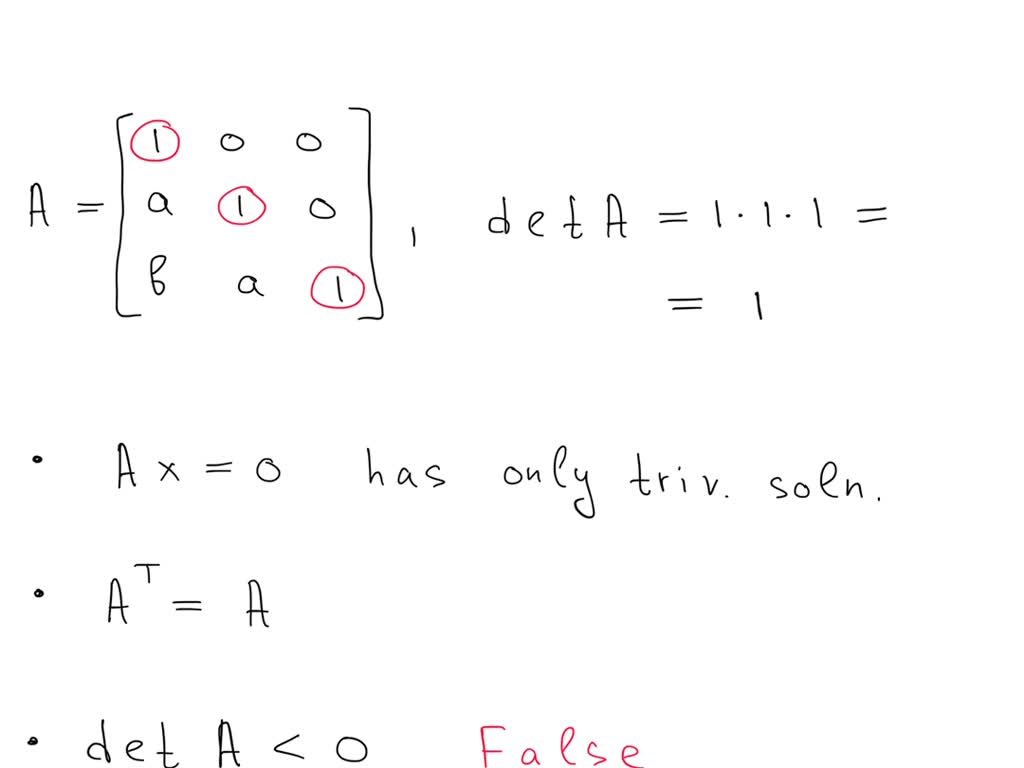 1 0 0
A = a 1 0 , det A = 1 · 1 · 1 =
b a 1 = 1
• A x = 0 has only triv. soln.
• Aᵀ = A
• det A < 0 False